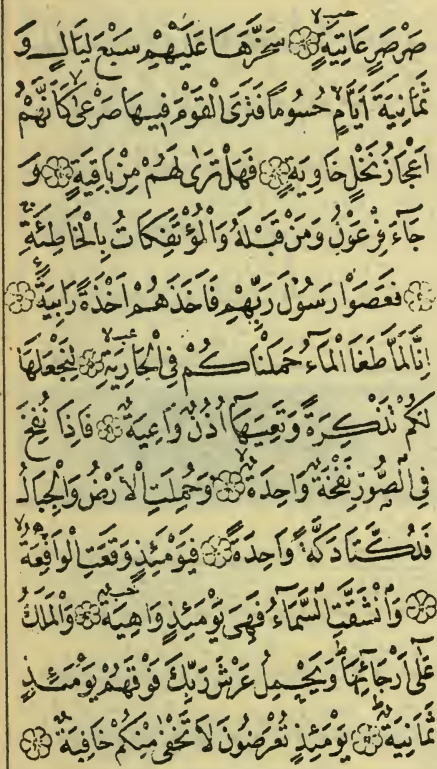 صَرْصَرٍ عَاتِيَةٍ ۝ سَخَّرَهَا عَلَيْهِمْ سَبْعَ لَيَالٍ وَ
ثَمَانِيَةَ اَيَّامٍ حُسُومًا فَتَرَى الْقَوْمَ فِيهَا صَرْعٰى كَاَنَّهُمْ
اَعْجَازُ نَخْلٍ خَاوِيَةٍ ۝ فَهَلْ تَرٰى لَهُمْ مِنْ بَاقِيَةٍ ۝ وَ
جَآءَ فِرْعَوْنُ وَمَنْ قَبْلَهُ وَالْمُؤْتَفِكَاتُ بِالْخَاطِئَةِ
۝ فَعَصَوْا رَسُولَ رَبِّهِمْ فَاَخَذَهُمْ اَخْذَةً رَابِيَةً ۝
اِنَّا لَمَّا طَغَا الْمَآءُ حَمَلْنَاكُمْ فِي الْجَارِيَةِ ۝ لِنَجْعَلَهَا
لَكُمْ تَذْكِرَةً وَتَعِيَهَا اُذُنٌ وَاعِيَةٌ ۝ فَاِذَا نُفِخَ
فِي الصُّورِ نَفْخَةٌ وَاحِدَةٌ ۝ وَحُمِلَتِ الْاَرْضُ وَالْجِبَالُ
فَدُكَّتَا دَكَّةً وَاحِدَةً ۝ فَيَوْمَئِذٍ وَقَعَتِ الْوَاقِعَةُ
۝ وَانْشَقَّتِ السَّمَآءُ فَهِيَ يَوْمَئِذٍ وَاهِيَةٌ ۝ وَالْمَلَكُ
عَلٰى اَرْجَآئِهَا وَيَحْمِلُ عَرْشَ رَبِّكَ فَوْقَهُمْ يَوْمَئِذٍ
ثَمَانِيَةٌ ۝ يَوْمَئِذٍ تُعْرَضُونَ لَا تَخْفٰى مِنْكُمْ خَافِيَةٌ ۝